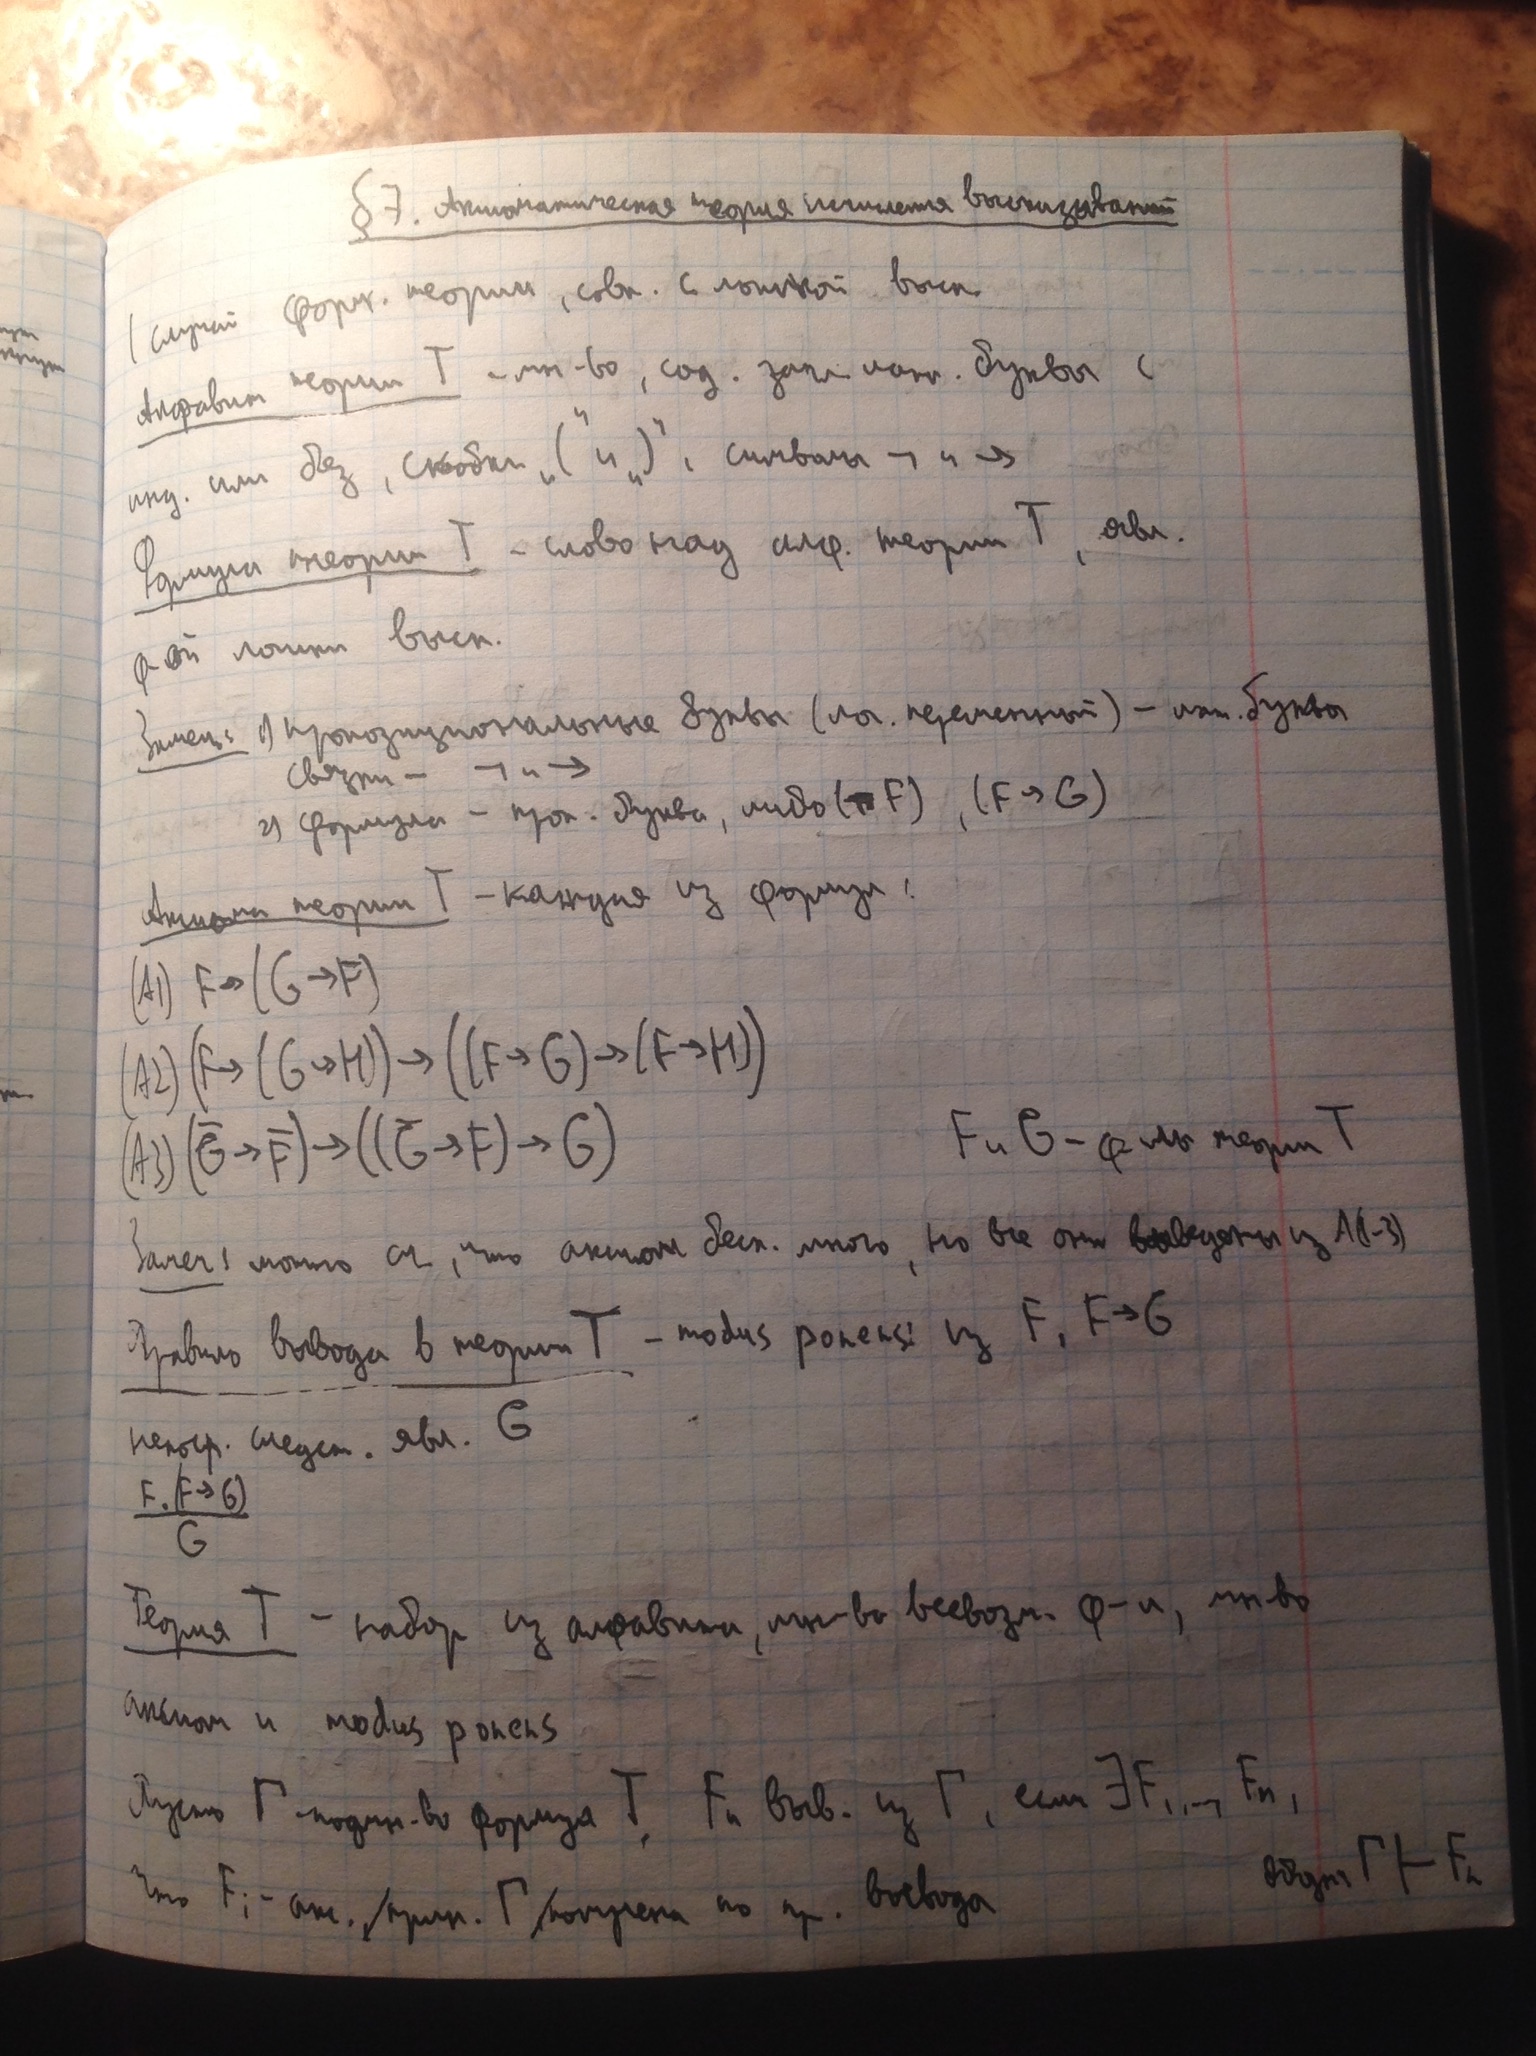 §7. Аксиоматическая теория исчисления высказываний
(случай форм. теории, совп. с логикой выск.
Алфавит теории T – мн-во, сод. загл. латин. буквы с
инд. или без, скобки „(" и „)", символы ¬ и →
Формула теории T – слово над алф. теории T, явл.
ф-ой логики выск.
Замеч: 1) пропозициональные буквы (лог. переменный) – лат. буквы
связки – ¬ и →
2) формула – проп. буква, либо (¬F), (F→G)
Аксиома теории T – каждая из формул:
(A1) F→(G→F)
(A2) (F→(G→H))→((F→G)→(F→H))
(A3) (G̅→F̅)→((G̅→F)→G)
F и G – ф-лы теории T
Замеч: можно сч, что аксиом беск. много, но все они выведены из A(1-3)
Правило вывода в теории T – modus ponens: из F, F→G
непоср. следст. явл. G
F, (F→G)
G
Теория T – набор из алфавита, мн-ва всевозм. ф-л, мн-во
аксиом и modus ponens
Пусть Γ – подмн-во формул T, Fn выв. из Γ, если ∃F1,..., Fn,
что Fi – акс./прин. Γ/получена по пр. вывода
обозн Γ ⊢ Fn